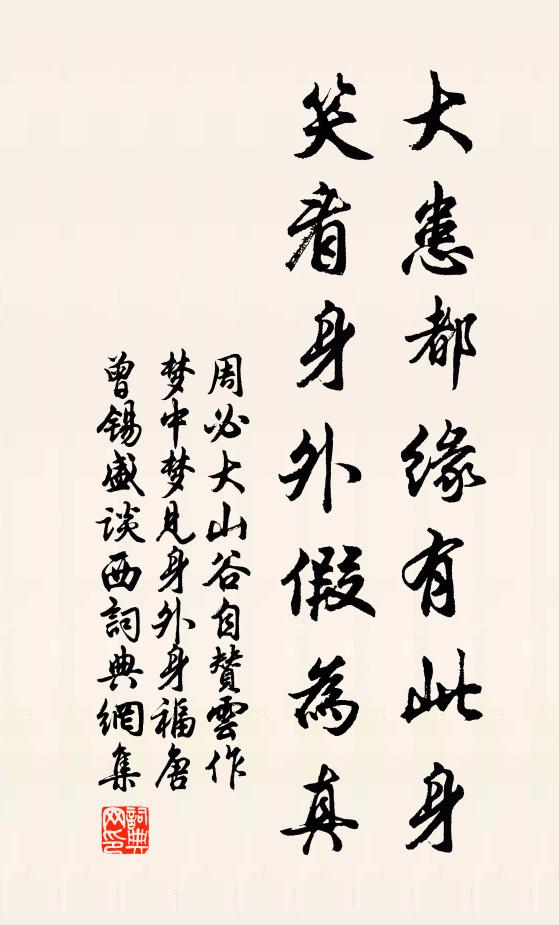 大患都緣有此身
笑看身外假為真
周必大山谷自贊雲作
梦中梦見身外身福唐
曾锡盛谈西詞典網集
詞典網印